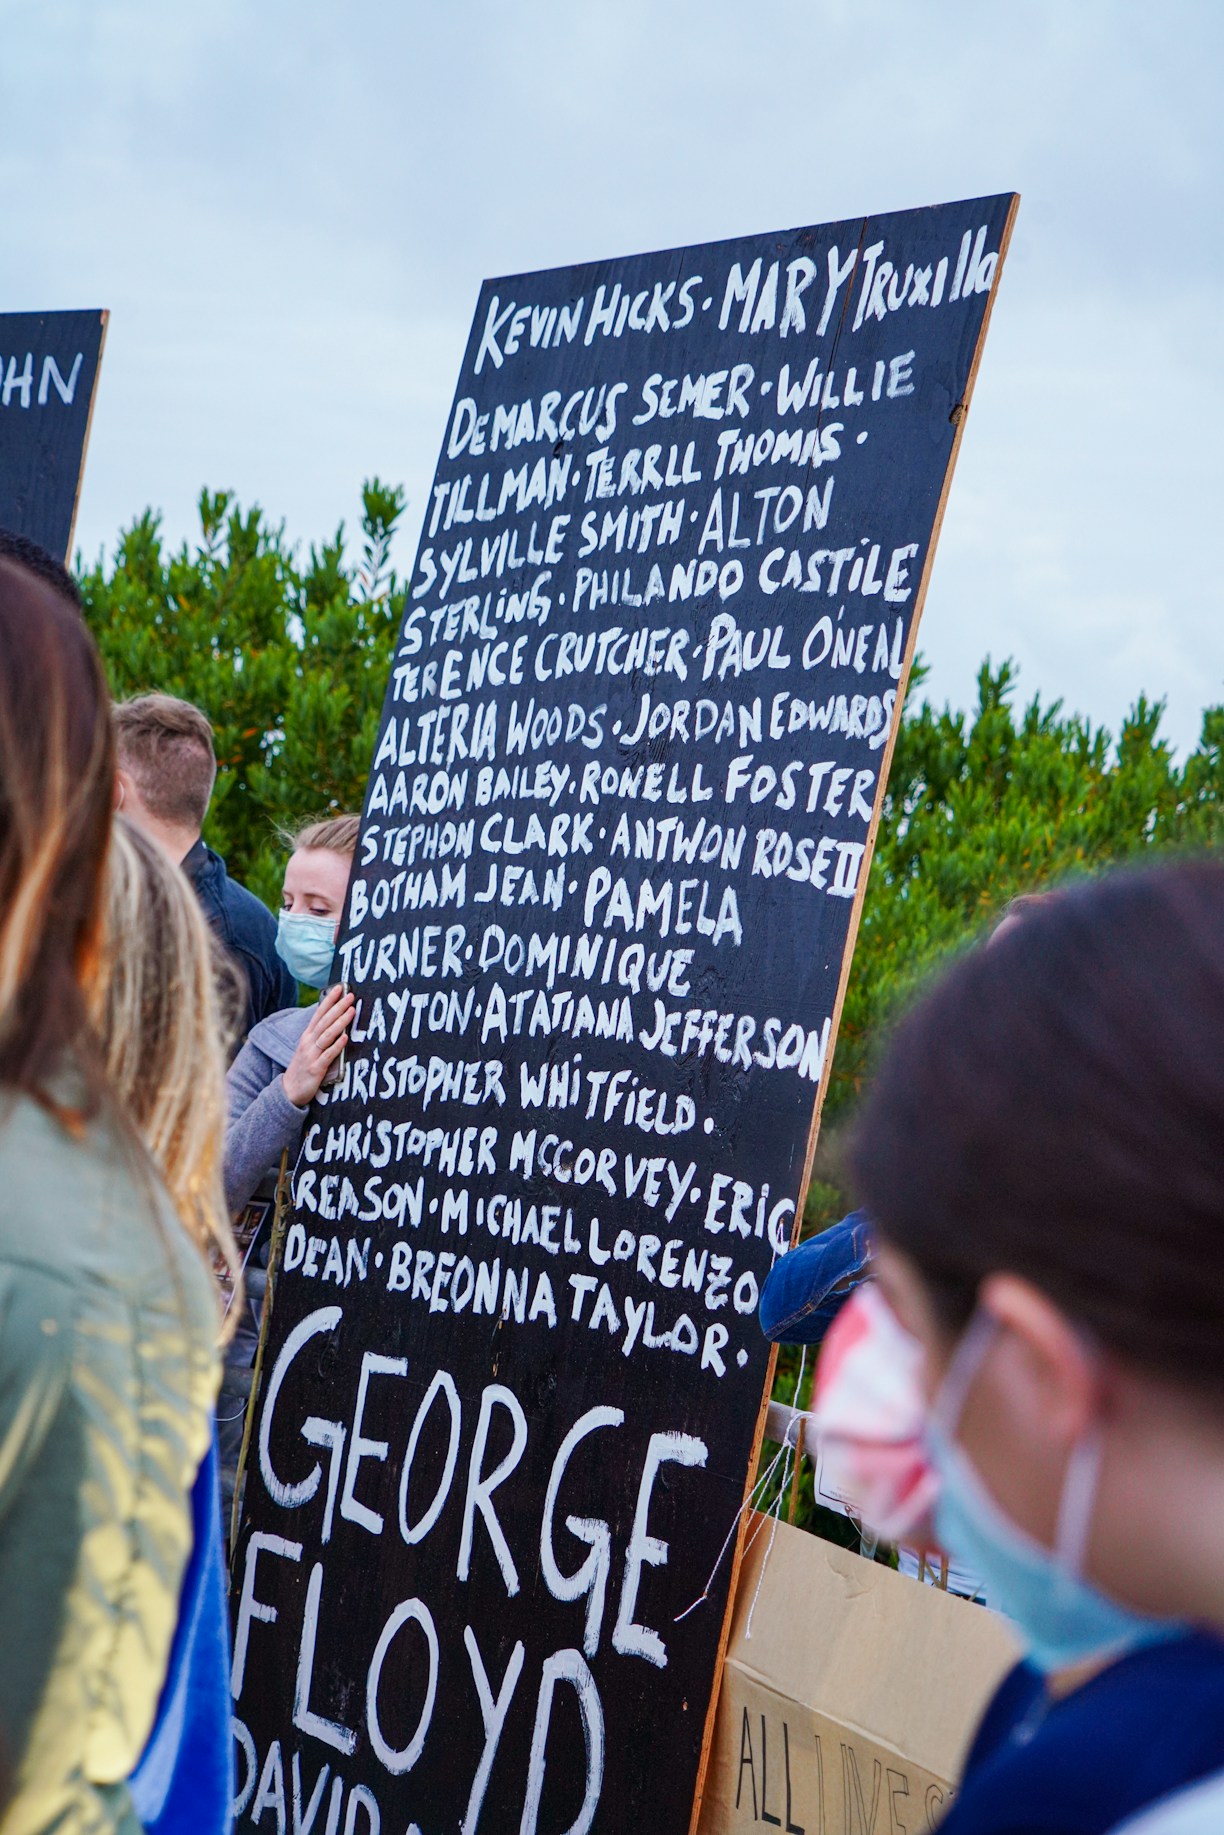 OHN
KEVIN HICKS · MARY TRUXILLO
DEMARCUS SEMER · WILLIE
TILLMAN · TERRLL THOMAS ·
SYLVILLE SMITH · ALTON
STERLING · PHILANDO CASTILE
TERENCE CRUTCHER · PAUL O'NEAL
ALTERIA WOODS · JORDAN EDWARDS
AARON BAILEY · RONELL FOSTER
STEPHON CLARK · ANTWON ROSE II
BOTHAM JEAN · PAMELA
TURNER · DOMINIQUE
CLAYTON · ATATIANA JEFFERSON
CHRISTOPHER WHITFIELD.
CHRISTOPHER MCCORVEY · ERIC
REASON · MICHAEL LORENZO
DEAN · BREONNA TAYLOR.
GEORGE
FLOYD
DAVID
ALL LIVES